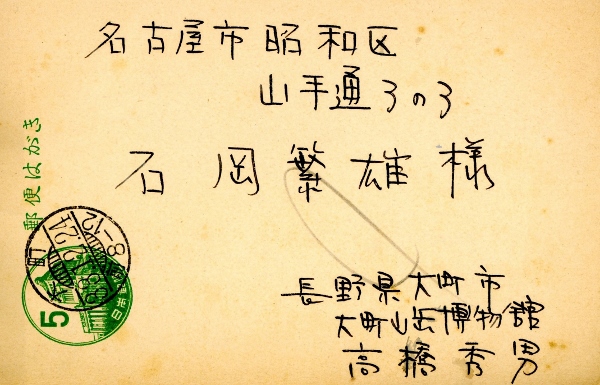 名古屋市昭和区
山手通3の3
石岡繁雄様
長野県大町市
大町山岳博物館
高橋秀男
郵便はがき
5
日本郵便
8-12